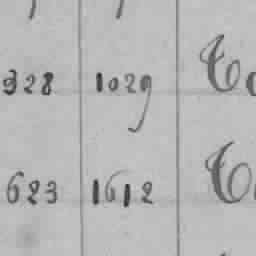 328 1029
623 1612